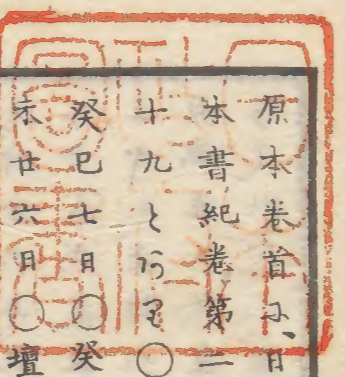 原本卷首ニ、日
本書紀卷第二
十九とあり〇
癸巳七日〇癸
未廿六日〇壇